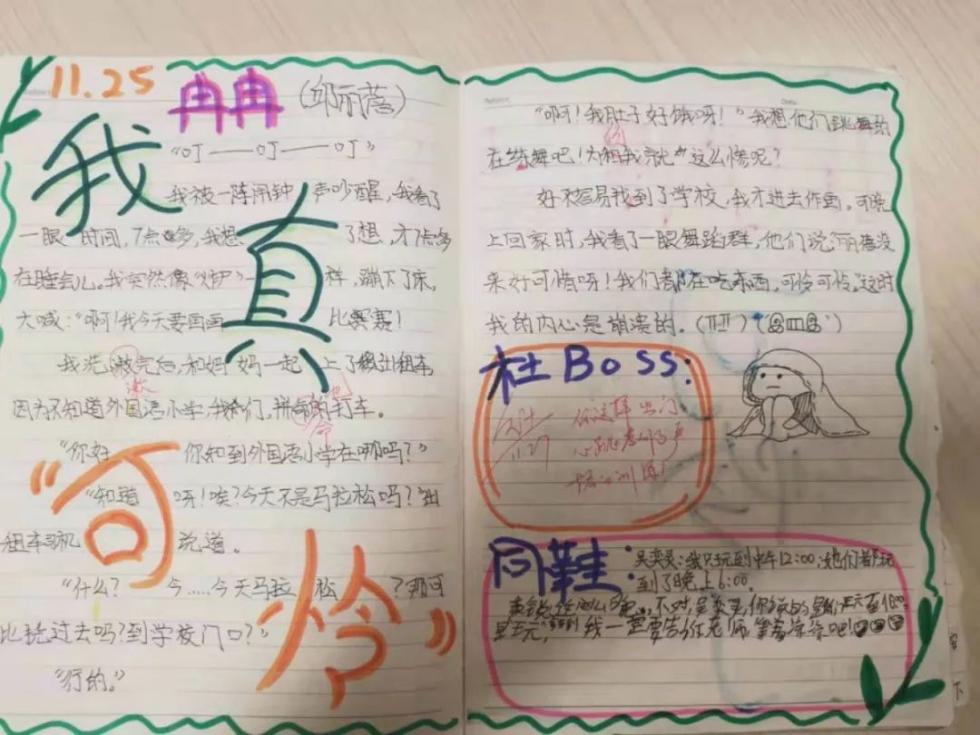 11.25
冉冉（邱丽蓓）
我真"可怜"
"叮——叮——叮"
我被一阵闹钟声吵醒，我看了
一眼时间，7点多，我想了想，才7点多
在睡会儿。我突然像"炉"一样，蹦下了床，
大喊："啊！我今天要画画比赛赛！
我洗漱完后，和妈妈一起上了出租车，
因为不知道外国语小学，我们，拼命的打车。
"你好 你知到外国语小学在哪吗？"
"知道呀！唉？今天不是马拉松吗？"出
租车司机说道。
"什么？今……今天马拉松？那可
比赛过去吗？到学校门口？"
"行的。"
"啊！我肚子好饿呀！"我想他们跳舞的
在练舞吧！为啥我就这么惨呢？
好不容易找到了学校，我才进去作画。可晚
上回家时，我看了一眼舞蹈群，他们说丽蓓没
来好可惜呀！我们都在吃东西，可怜可怜。这时
我的内心是崩溃的。
杜Boss：
11.27
你这样出门
同鞋：
吴奕炅：我只玩到中午12：00，她们都玩
到了晚上6：00。
我一定要告诉老师